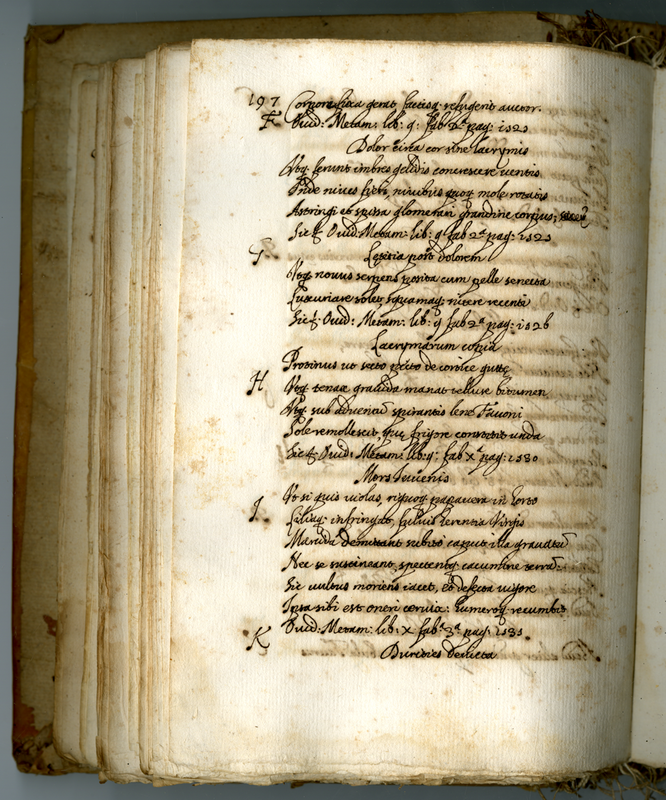 197
Corpore fixa gerat factisq; refugerit auctor.
F Ouid: Metam: lib: 9: fab 2ª pag: 1323
Dolor circa cor sine lacrymis
Vtq; ferunt imbres gelidis concrescere uentis
Inde niues fieri, niuibus quoq; mole rotatis
Astringi et spissa glomerari grandine corpus;
Sic Ouid: Metam: lib: 9 fab 2ª pag: 1323
G Letitia post dolorem
Vtq; nouus serpens posita cum pelle senecta
Luxuriare solet, squamaq; nitere recenti
Sic Ouid: Metam: lib: 9 fab 2ª pag: 1326
Lacrymarum copia
Protinus ut secto de cortice gutte
H Vtq; tenax grauida manat tellure bitumen
Vtq; sub aduentu spirantis lene Fauoni
Sole remollescit, que frigore constitit unda
Sic Ouid: Metam: lib: 9: fab xª pag: 1330
Mors Iuuenis
I Vt si quis uiolas, papauera in horto
Liliaq; infringat, fuluis herentia Virgis
Marcida demittant subito caput illa grauatũ
Nec se sustineant, spectentq; cacumine terrã:
Sic uultus moriens iacet, et defecta uigore
Ipsa sibi est oneri ceruix: humeroq; recumbit
K Ouid: Metam: lib: x fabª 3ª pag: 1331.
Durities deuicta